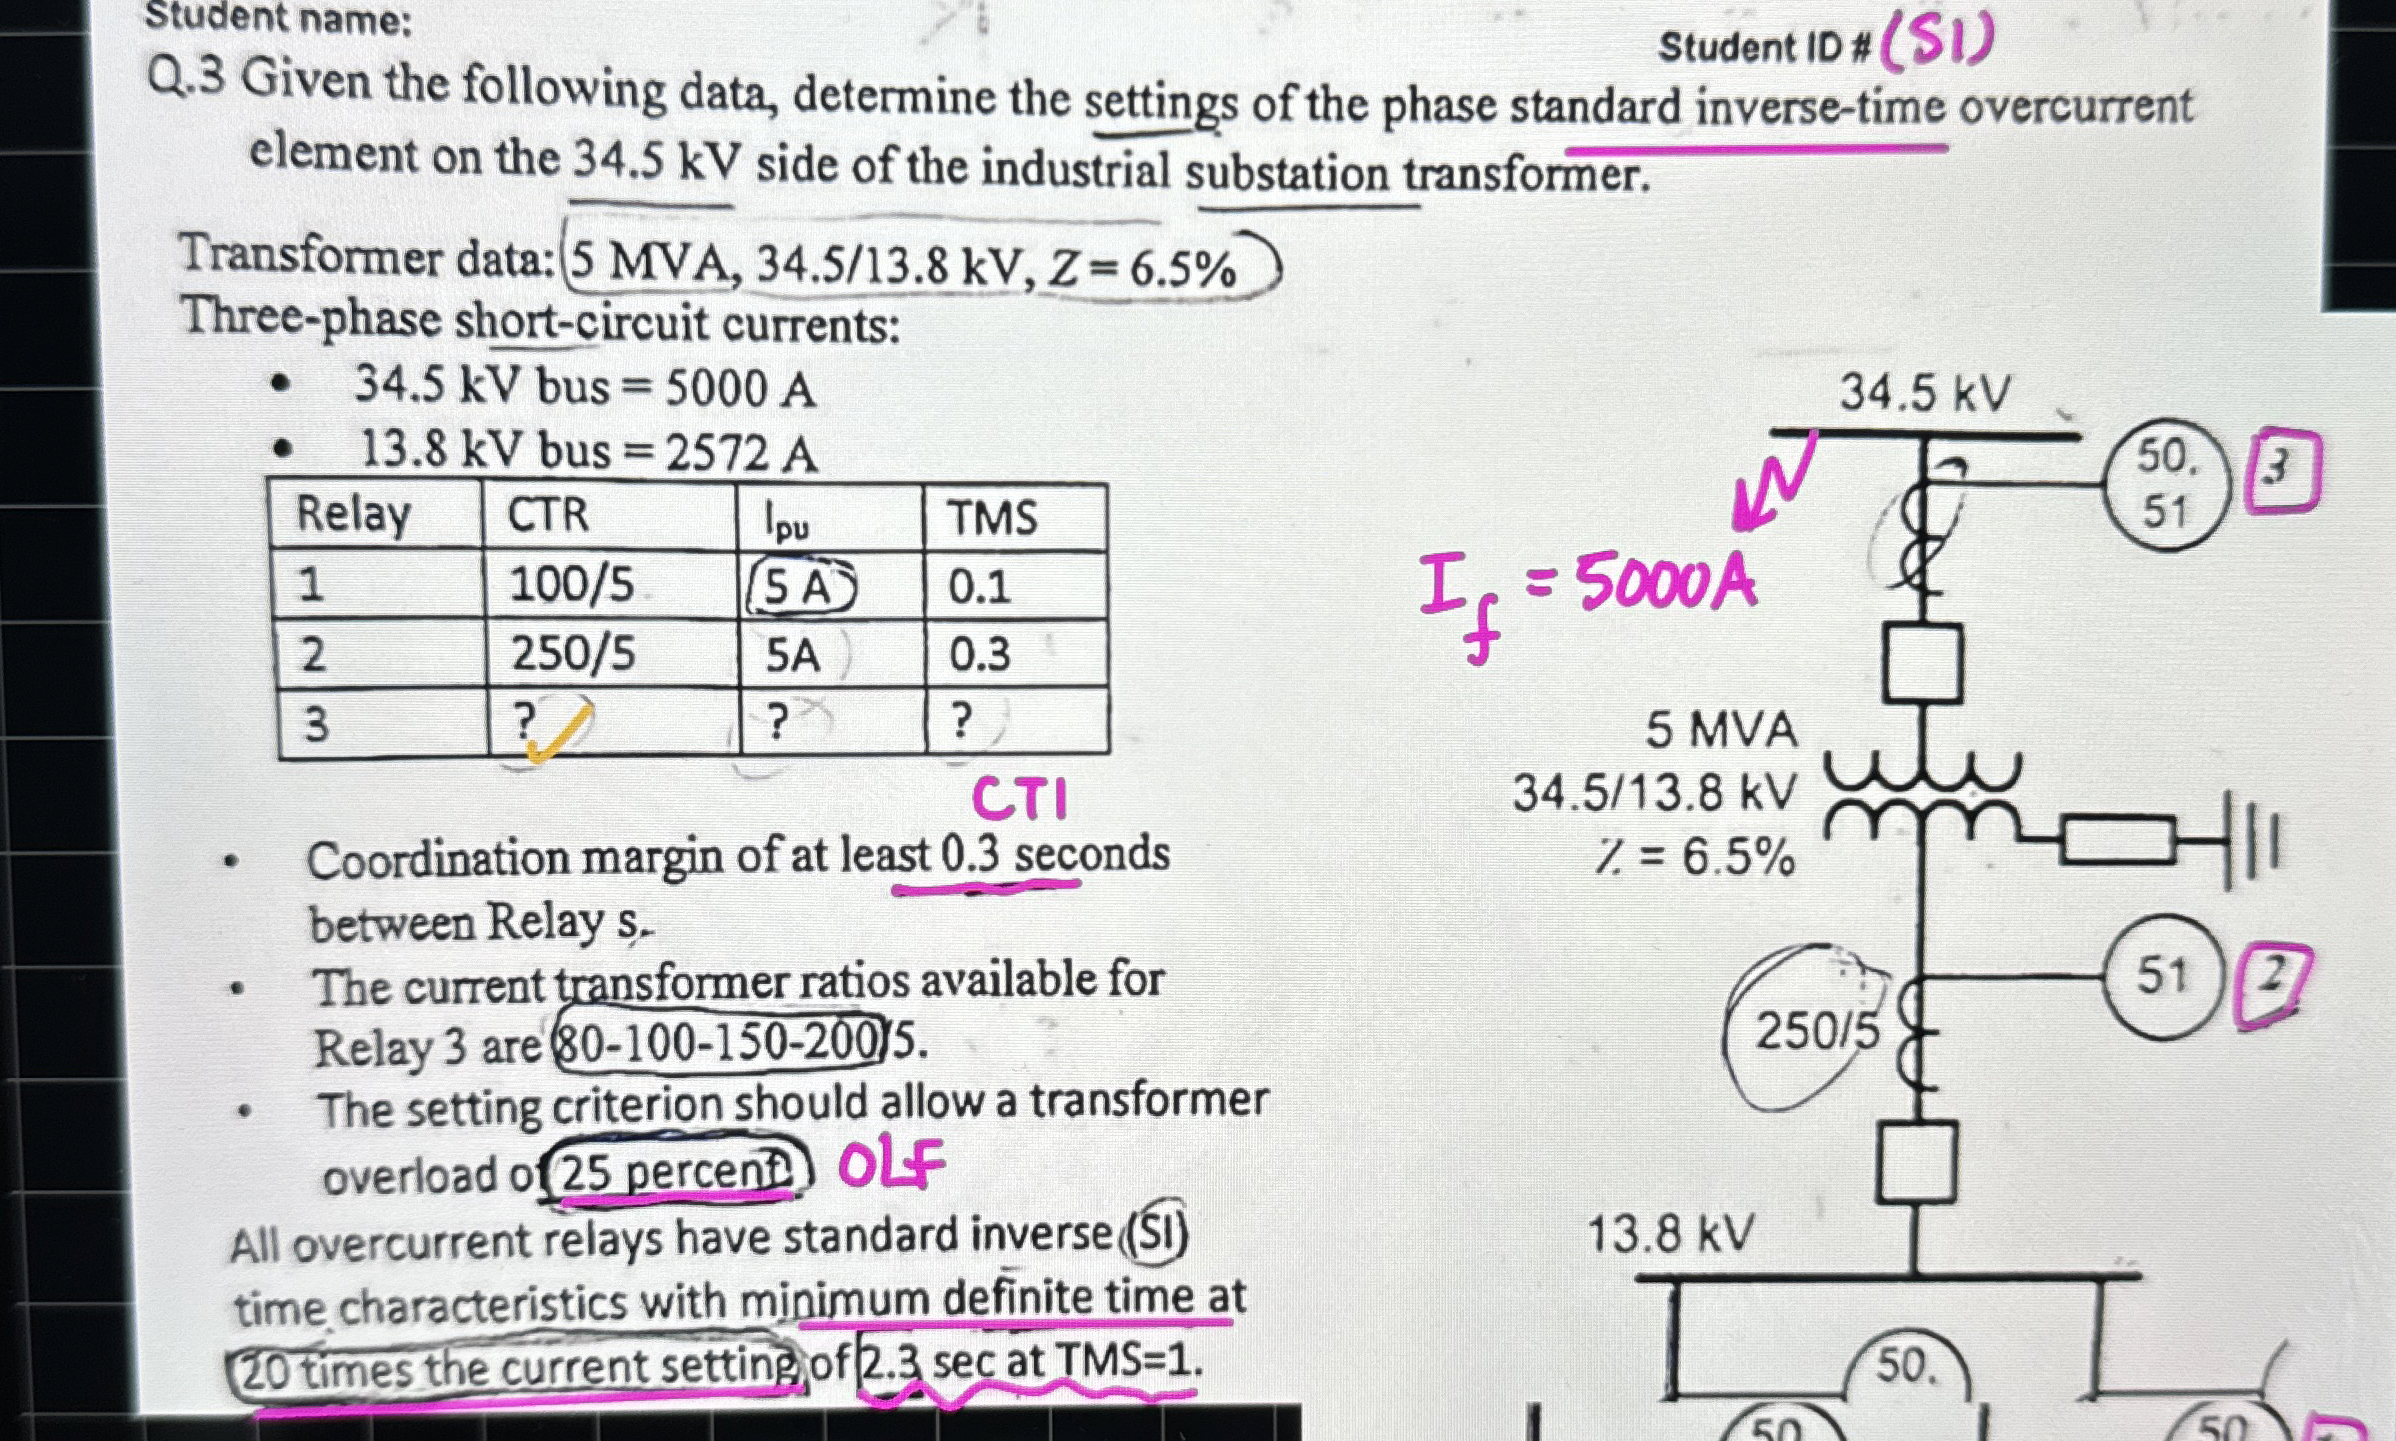 Student name:
Student ID # (SI)
Q.3 Given the following data, determine the settings of the phase standard inverse-time overcurrent
element on the 34.5 kV side of the industrial substation transformer.
Transformer data: 5 MVA, 34.5/13.8 kV, Z = 6.5%
Three-phase short-circuit currents:
• 34.5 kV bus = 5000 A
• 13.8 kV bus = 2572 A
Relay CTR Ipu TMS
1 100/5 5 A 0.1
2 250/5 5A 0.3
3 ? ? ?
CTI
• Coordination margin of at least 0.3 seconds
between Relay s.
• The current transformer ratios available for
Relay 3 are 80-100-150-200/5.
• The setting criterion should allow a transformer
overload of 25 percent) OLF
All overcurrent relays have standard inverse (SI)
time characteristics with minimum definite time at
20 times the current setting of 2.3 sec at TMS=1.
34.5 kV
50.
51
3
If = 5000A
5 MVA
34.5/13.8 kV
Z = 6.5%
51
2
250/5
13.8 kV
50.
50
50